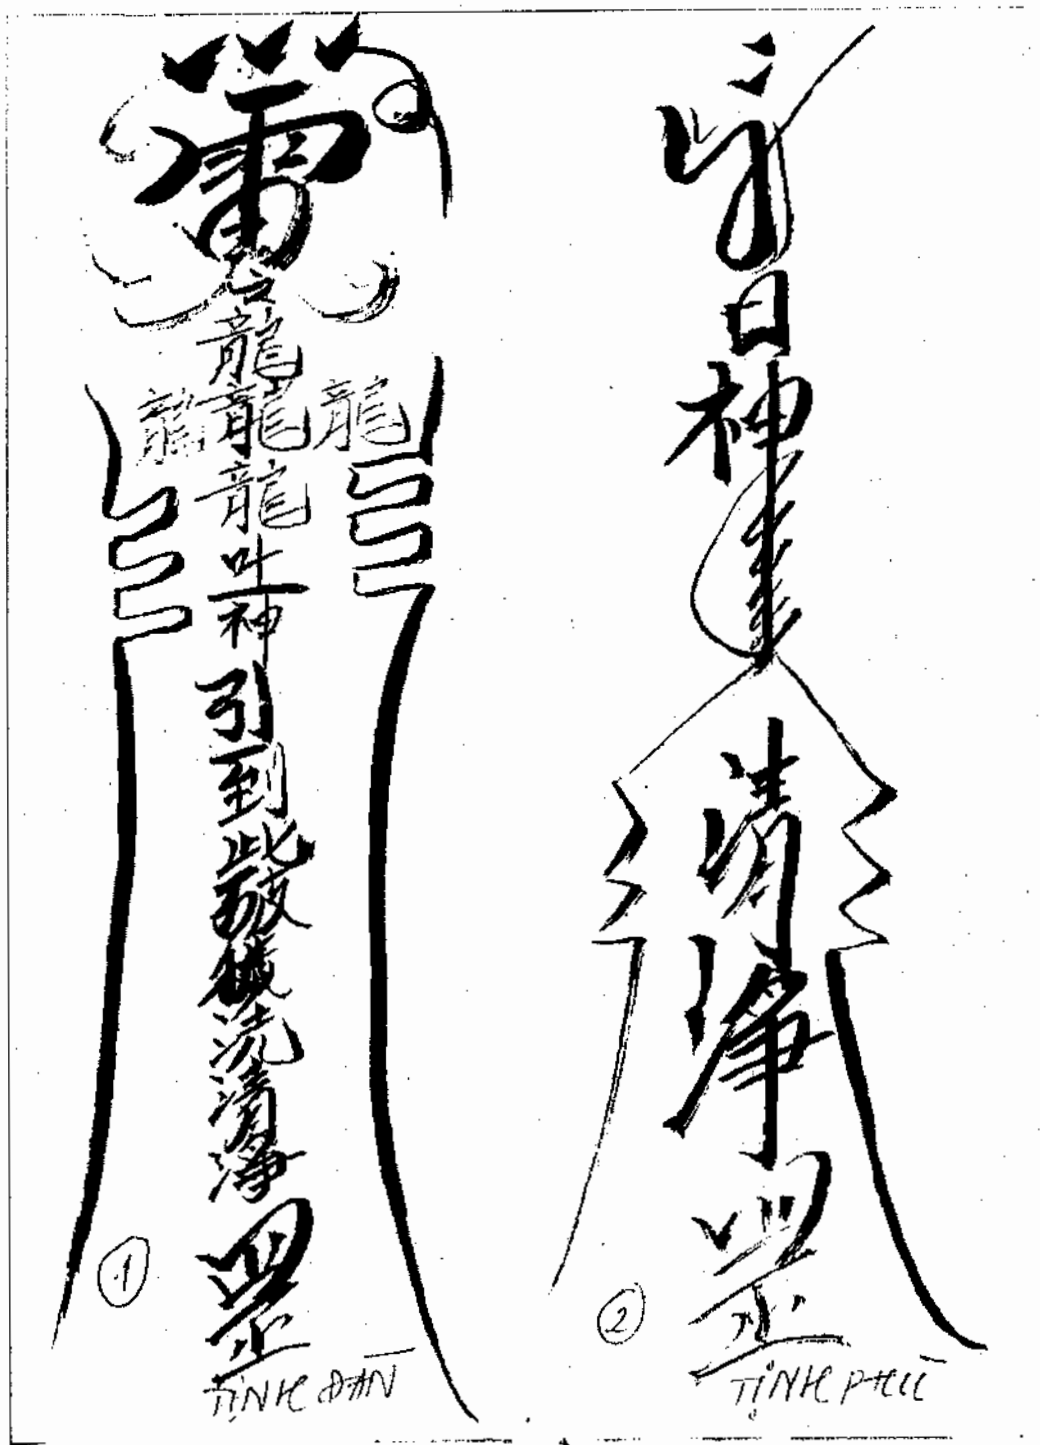 雷
龍
龍 龍 龍
龍
吐
神
引
到
此
破
穢
洗
清
淨
罡
①
TỊNH ĐÀN
日
神
清
淨
罡
②
TỊNH PHÙ